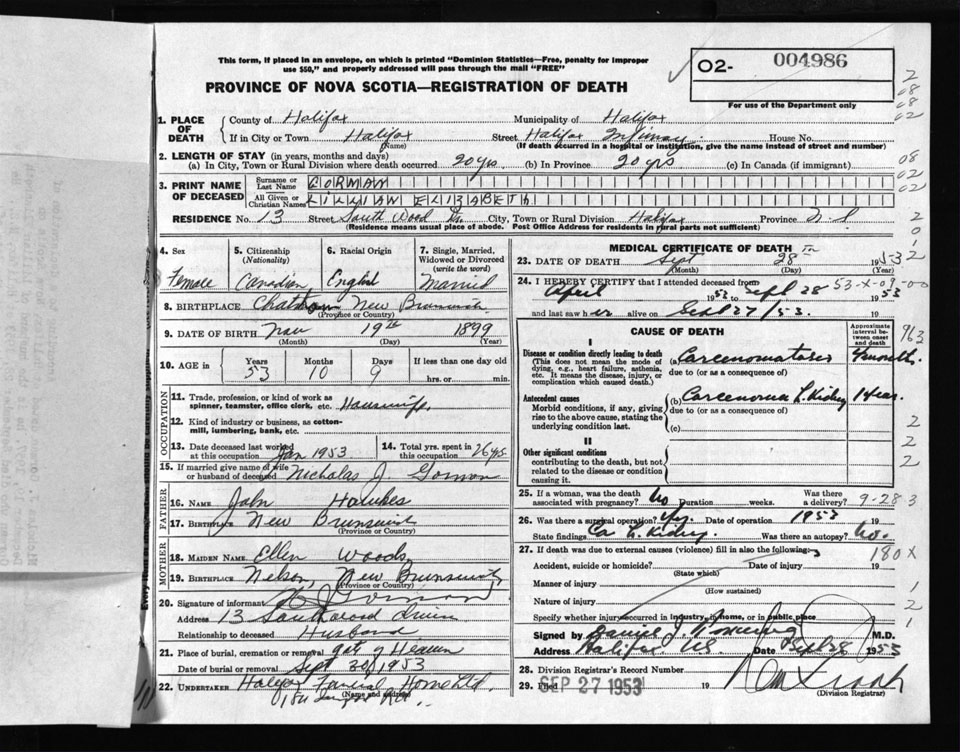 This form, if placed in an envelope, on which is printed "Dominion Statistics—Free, penalty for improper
use $50," and properly addressed will pass through the mail "FREE"
PROVINCE OF NOVA SCOTIA—REGISTRATION OF DEATH
O2- 004986
For use of the Department only
1. PLACE OF DEATH
County of Halifax Municipality of Halifax
If in City or Town Halifax Street Halifax Infirmary. House No.
(Name) (If death occurred in a hospital or institution, give the name instead of street and number)
2. LENGTH OF STAY (in years, months and days)
(a) In City, Town or Rural Division where death occurred 20 yrs (b) In Province 20 yrs (c) In Canada (if immigrant)
3. PRINT NAME OF DECEASED
Surname or Last Name GORMAN
All Given or Christian Names LILLIAN ELIZABETH
RESIDENCE No. 13 Street South Wood Dr. City, Town or Rural Division Halifax Province N.S.
(Residence means usual place of abode. Post Office Address for residents in rural parts not sufficient)
4. Sex Female
5. Citizenship (Nationality) Canadian
6. Racial Origin English
7. Single, Married, Widowed or Divorced (write the word) Married
8. BIRTHPLACE Chatham New Brunswick
(Province or Country)
9. DATE OF BIRTH Nov 19th 1899
(Month) (Day) (Year)
10. AGE in Years 53 Months 10 Days 9 If less than one day old
hrs. or min.
OCCUPATION
11. Trade, profession, or kind of work as
spinner, teamster, office clerk, etc. Housewife.
12. Kind of industry or business, as cotton-
mill, lumbering, bank, etc.
13. Date deceased last worked at this occupation Jan 1953
14. Total yrs. spent in this occupation 26 yrs
15. If married give name of wife or husband of deceased Nicholas J. Gorman
FATHER
16. NAME John
17. BIRTHPLACE New Brunswick
(Province or Country)
MOTHER
18. MAIDEN NAME Ellen Woods
19. BIRTHPLACE Nelson, New Brunswick
(Province or Country)
20. Signature of informant N J Gorman
Address 13 Southwood Drive
Relationship to deceased Husband
21. Place of burial, cremation or removal gate of Heaven
Date of burial or removal Sept 1953
22. UNDERTAKER Halifax Funeral Home Ltd.
(Name and address)
MEDICAL CERTIFICATE OF DEATH
23. DATE OF DEATH Sept 28th 1953
(Month) (Day) (Year)
24. I HEREBY CERTIFY that I attended deceased from
April 1953 to Sept 28 1953
53-X-09-00
and last saw her alive on Sept 27/53. 19
CAUSE OF DEATH
Approximate interval between onset and death
I
Disease or condition directly leading to death
(This does not mean the mode of dying, e.g., heart failure, asthenia, etc. It means the disease, injury, or complication which caused death.)
(a) Carcenomatosis month.
due to (or as a consequence of)
Antecedent causes
Morbid conditions, if any, giving rise to the above cause, stating the underlying condition last.
(b) Carcenoma L. Kidney 1 year.
due to (or as a consequence of)
(c)
II
Other significant conditions
contributing to the death, but not related to the disease or condition causing it.
25. If a woman, was the death associated with pregnancy? No Duration weeks. Was there a delivery? 9-28 3
26. Was there a surgical operation? Yes. Date of operation 1953 19
State findings Ca L. Kidney. Was there an autopsy? No.
27. If death was due to external causes (violence) fill in also the following: 180 X
Accident, suicide or homicide? Date of injury 19
(State which)
Manner of injury
(How sustained)
Nature of injury
Specify whether injury occurred in industry, in home, or in public place
Signed by M.D.
Address Halifax NS. Date Sept 28 1953
28. Division Registrar's Record Number
29. Filed SEP 27 1953 19
(Division Registrar)